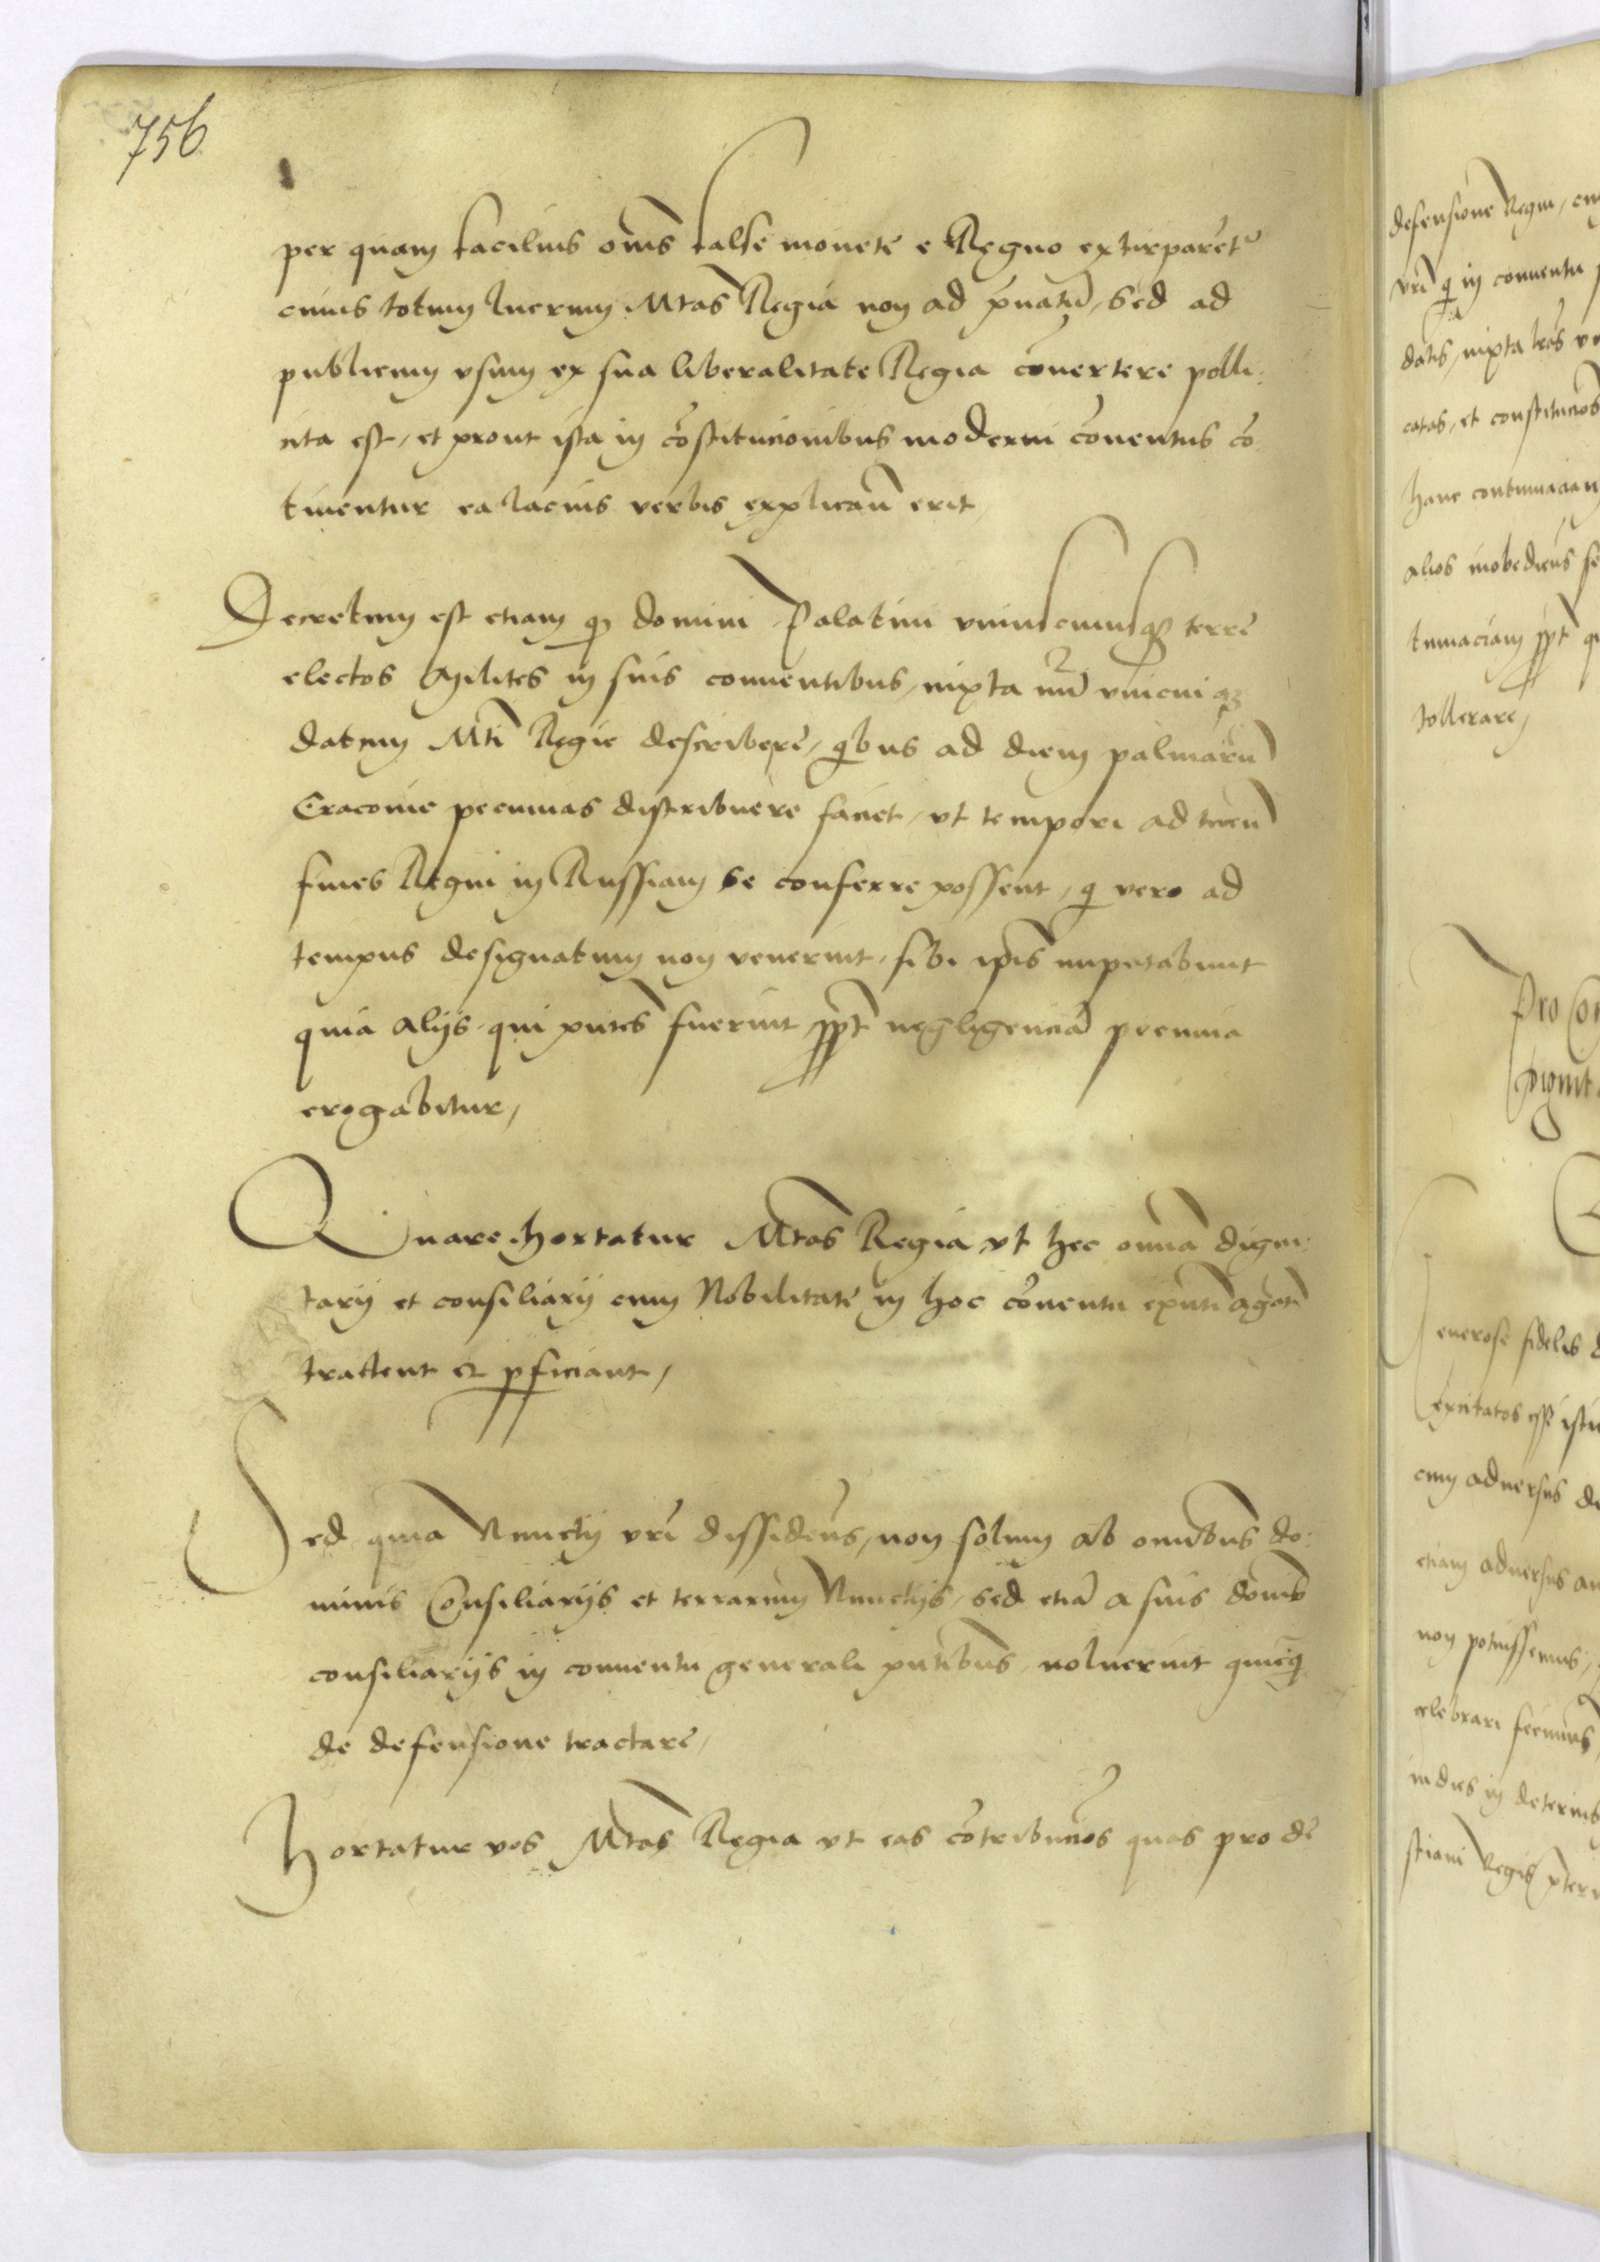 756
per quam facilius oms false monete e Regno extirparet̃
cuius totum lucrum Mtas Regia non ad p̃uatũ, sed ad
publicum vsum ex sua liberalitate Regia cõuertere polli:
cita est, et prout ista in cõstitucionibus moderni cõuentus cõ
tinentur ea lacius verbis explicañ erit,
Decretum est etiam q̃ domini Palatini vniuscuiusq3 terrẽ
electos Milites in suis conuentibus, iuxta nũ vnicuiq3
datum Mti Regie describerẽ, q̃bus ad diem palmarũ
Cracouie pecunias distribuere faciet, vt tempori ad tuen̄
fines Regni in Russiam se conferre possent, q̃ vero ad
tempus designatum non venerint, sibi ip̃is imputabunt
quia alijs qui pñtes fuerint ꝓpt̃ negligenciã premia
erogabitur,
Quare hortatur Mtas Regia vt hec omĩa digni:
tarij et consiliarij cum Nobilitatẽ in hoc cõuentu exñti agãt
tractent et ꝑficiant,
Sed quia Nunctij vr̃i dissideñs, non solum ab omnibus do:
minis Consiliarijs et terrarum Nunctijs, sed etiã a suis dom̃is
consiliarijs in conuentu generali pñtibus, noluerint quicq̃
de defensione tractare,
Hortatur vos Mtas Regia vt eas cõtribucões quas pro dẽ
defensione Regni,
vr̃i q̃ in conuentu
datis, iuxta lrãs
catas, et constitucões
hanc contumaciam
alios inobedieñs
tumaciam ꝓpt̃
tollerare,
Pro
enerose fidelis
excitatos esse
cum aduersus
etiam aduersus
non potuissemus,
celebrari fecimus
indies in deterius
stiani Regis